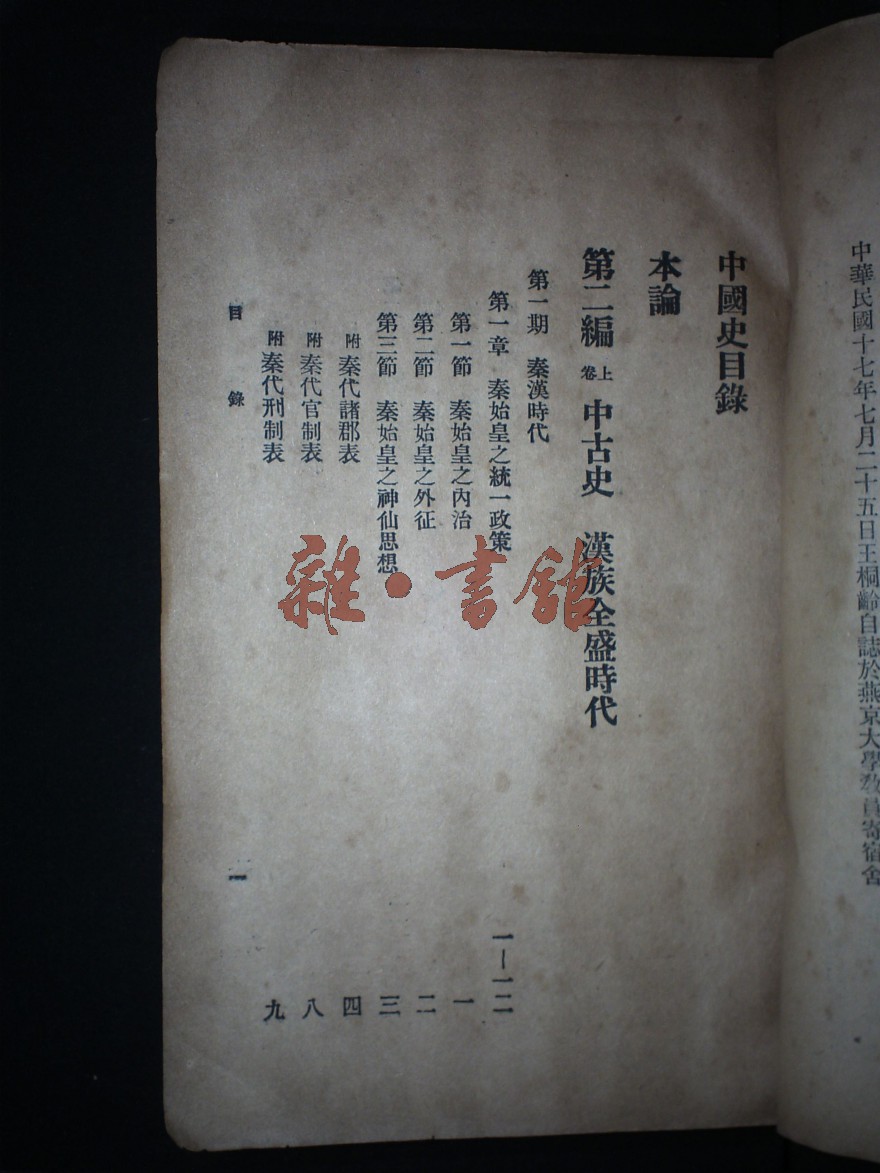 中華民國十七年七月二十五日王桐齡自誌於燕京大學教員寄宿舍
中國史目錄
本論
第二編 上卷 中古史 漢族全盛時代
第一期 秦漢時代
第一章 秦始皇之統一政策 一—一二
第一節 秦始皇之內治 一
第二節 秦始皇之外征 二
第三節 秦始皇之神仙思想 三
附 秦代諸郡表 四
附 秦代官制表 八
附 秦代刑制表 九
目錄 一
雜·書館